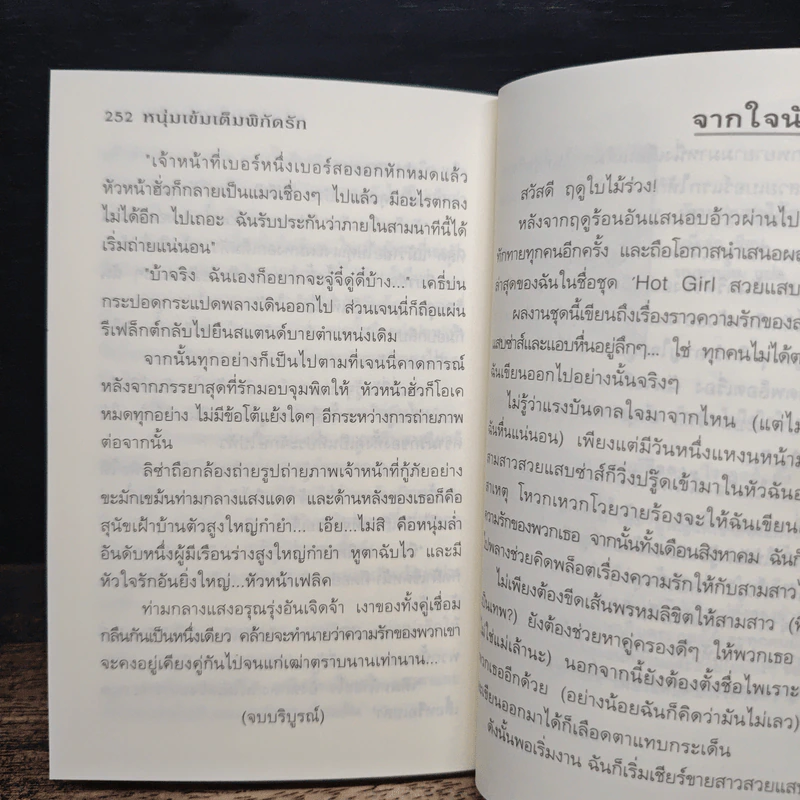 252 หนุ่มเข้มเต็มพิกัดรัก
"เจ้าหน้าที่เบอร์หนึ่งเบอร์สองอกหักหมดแล้ว
หัวหน้าฮั่วก็กลายเป็นแมวเชื่องๆ ไปแล้ว มีอะไรตกลง
ไม่ได้อีก ไปเถอะ ฉันรับประกันว่าภายในสามนาทีนี้ได้
เริ่มถ่ายแน่นอน"
"บ้าจริง ฉันเองก็อยากจะจู๋จี๋ดู๋ดี๋บ้าง..." เคธี่บ่น
กระปอดกระแปดพลางเดินออกไป ส่วนเจนนี่ก็ถือแผ่น
รีเฟล็กต์กลับไปยืนสแตนด์บายตำแหน่งเดิม
จากนั้นทุกอย่างก็เป็นไปตามที่เจนนี่คาดการณ์
หลังจากภรรยาสุดที่รักมอบจุมพิตให้ หัวหน้าฮั่วก็โอเค
หมดทุกอย่าง ไม่มีข้อโต้แย้งใดๆ อีกระหว่างการถ่ายภาพ
ต่อจากนั้น
ลิซ่าถือกล้องถ่ายรูปถ่ายภาพเจ้าหน้าที่กู้ภัยอย่าง
ขะมักเขม้นท่ามกลางแสงแดด และด้านหลังของเธอก็คือ
สุนัขเฝ้าบ้านตัวสูงใหญ่กำยำ... เอ๊ย...ไม่สิ คือหนุ่มล่ำ
อันดับหนึ่งผู้มีเรือนร่างสูงใหญ่กำยำ หูตาฉับไว และมี
หัวใจรักอันยิ่งใหญ่...หัวหน้าเฟลิค
ท่ามกลางแสงอรุณรุ่งอันเจิดจ้า เงาของทั้งคู่เชื่อม
กลืนกันเป็นหนึ่งเดียว คล้ายจะทำนายว่าความรักของพวกเขา
จะคงอยู่เคียงคู่กันไปจนแก่เฒ่าตราบนานเท่านาน...
(จบบริบูรณ์)
จากใจนั
สวัสดี ฤดูใบไม้ร่วง!
หลังจากฤดูร้อนอันแสนอบอ้าวผ่านไป
ทักทายทุกคนอีกครั้ง และถือโอกาสนำเสนอผล
ล่าสุดของฉันในชื่อชุด 'Hot Girl สวยแสบ
ผลงานชุดนี้เขียนถึงเรื่องราวความรักของส
แสบซ่าส์และแอบหื่นอยู่ลึกๆ... ใช่ ทุกคนไม่ได้ต
ฉันเขียนออกไปอย่างนั้นจริงๆ
ไม่รู้ว่าแรงบันดาลใจมาจากไหน (แต่ไม
ฉันหื่นแน่นอน) เพียงแต่มีวันหนึ่งแหงนหน้าม
สามสาวสวยแสบซ่าส์ก็วิ่งปรู๊ดเข้ามาในหัวฉันอ
สาเหตุ โหวกเหวกโวยวายร้องจะให้ฉันเขียน
ความรักของพวกเธอ จากนั้นทั้งเดือนสิงหาคม ฉันก็
ไปพลางช่วยคิดพล็อตเรื่องความรักให้กับสามสาวไ
ไม่เพียงต้องขีดเส้นพรหมลิขิตให้สามสาว (นี่
เป็นเทพ?) ยังต้องช่วยหาคู่ครองดีๆ ให้พวกเธอ
ไม่ใช่แม่เล้านะ) นอกจากนี้ยังต้องตั้งชื่อไพเราะ
พวกเธออีกด้วย (อย่างน้อยฉันก็คิดว่ามันไม่เลว)
เขียนออกมาได้ก็เลือดตาแทบกระเด็น
ดังนั้นพอเริ่มงาน ฉันก็เริ่มเชียร์ขายสาวสวยแส